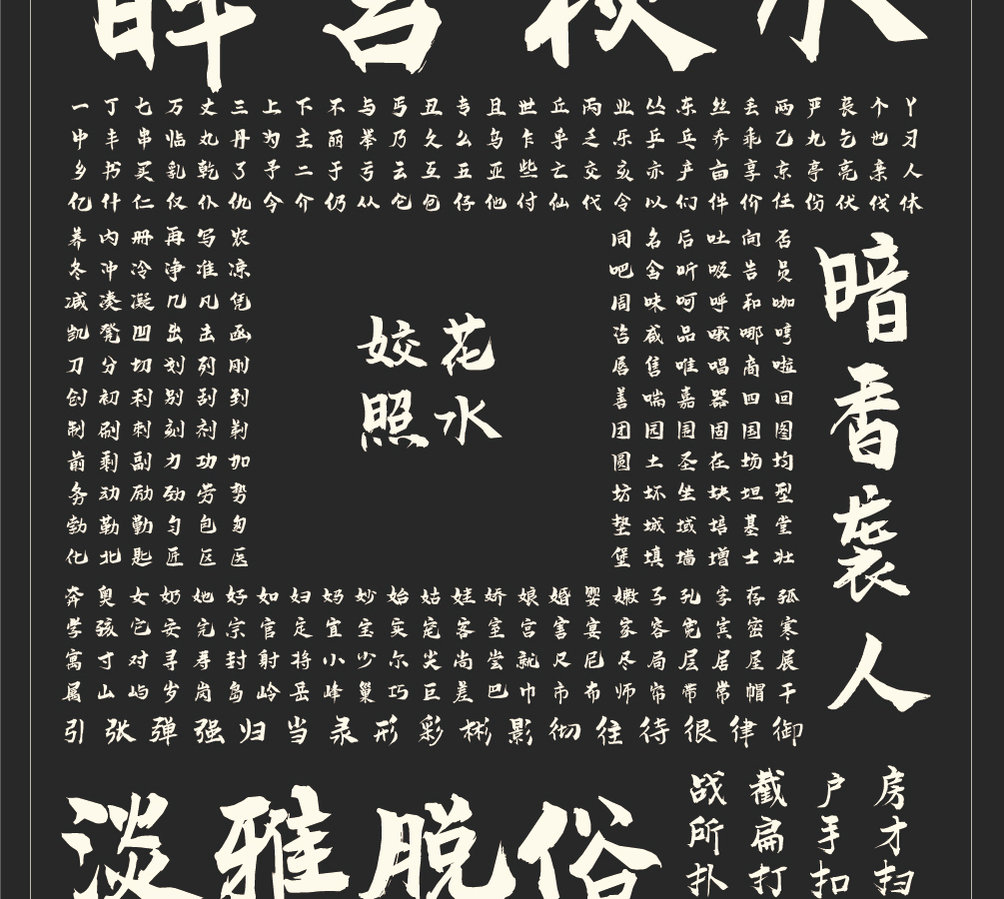 一丁七万丈三上下不与丐丑专且世丘丙业丛东丝丢两严丧个丫
中丰串临丸丹为主丽举乃久么乌乍乎乏乐乒乓乔乖乘乙九乞也习
乡书买乱乾了予二于亏云互五亚些亡交亥亦产亩享京亭亮亲人
亿什仁仅仆仇今介仍从仑仓仔他付仙代令以们件价任仿伏伐休
养内册再写农
冬冲冷净准凉
减凑凝几凡凭
凯凳凹出击函
刀分切划列刚
创初利别刮到
制刷刺刻剂剃
前剩副力功加
务动励劲劳势
勃勒勤匀包匆
化北匙匠区医
姣花
照水
同名后吐向否
吧舍听吸告员
周味呵呼和咖
咨咸品哦哪哼
唇售唯唱商啦
善喘嘉器四回
团园围固国图
圆土圣在场均
坊坏坐块坦型
垫城域培基堂
堡填墙增士壮
暗香袭人
奔奥女奶她好如妇妈妙始姑娃娇娘婚婴嫩子孔字存孤
学孩它安完宗官定宜宝实宠客室宫害宴家容宽宾密寒
寓寸对寻寿封射将小少尔尖尚尝就尺尼尽局层居屋展
属山屿岁岗岛岭岳峰巢巧巨差巴巾市布师帘带常帽干
引张弹强归当录形彩彬影彻往待很律御
淡雅脱俗
战截户房
所扁手才
扑打扣扫